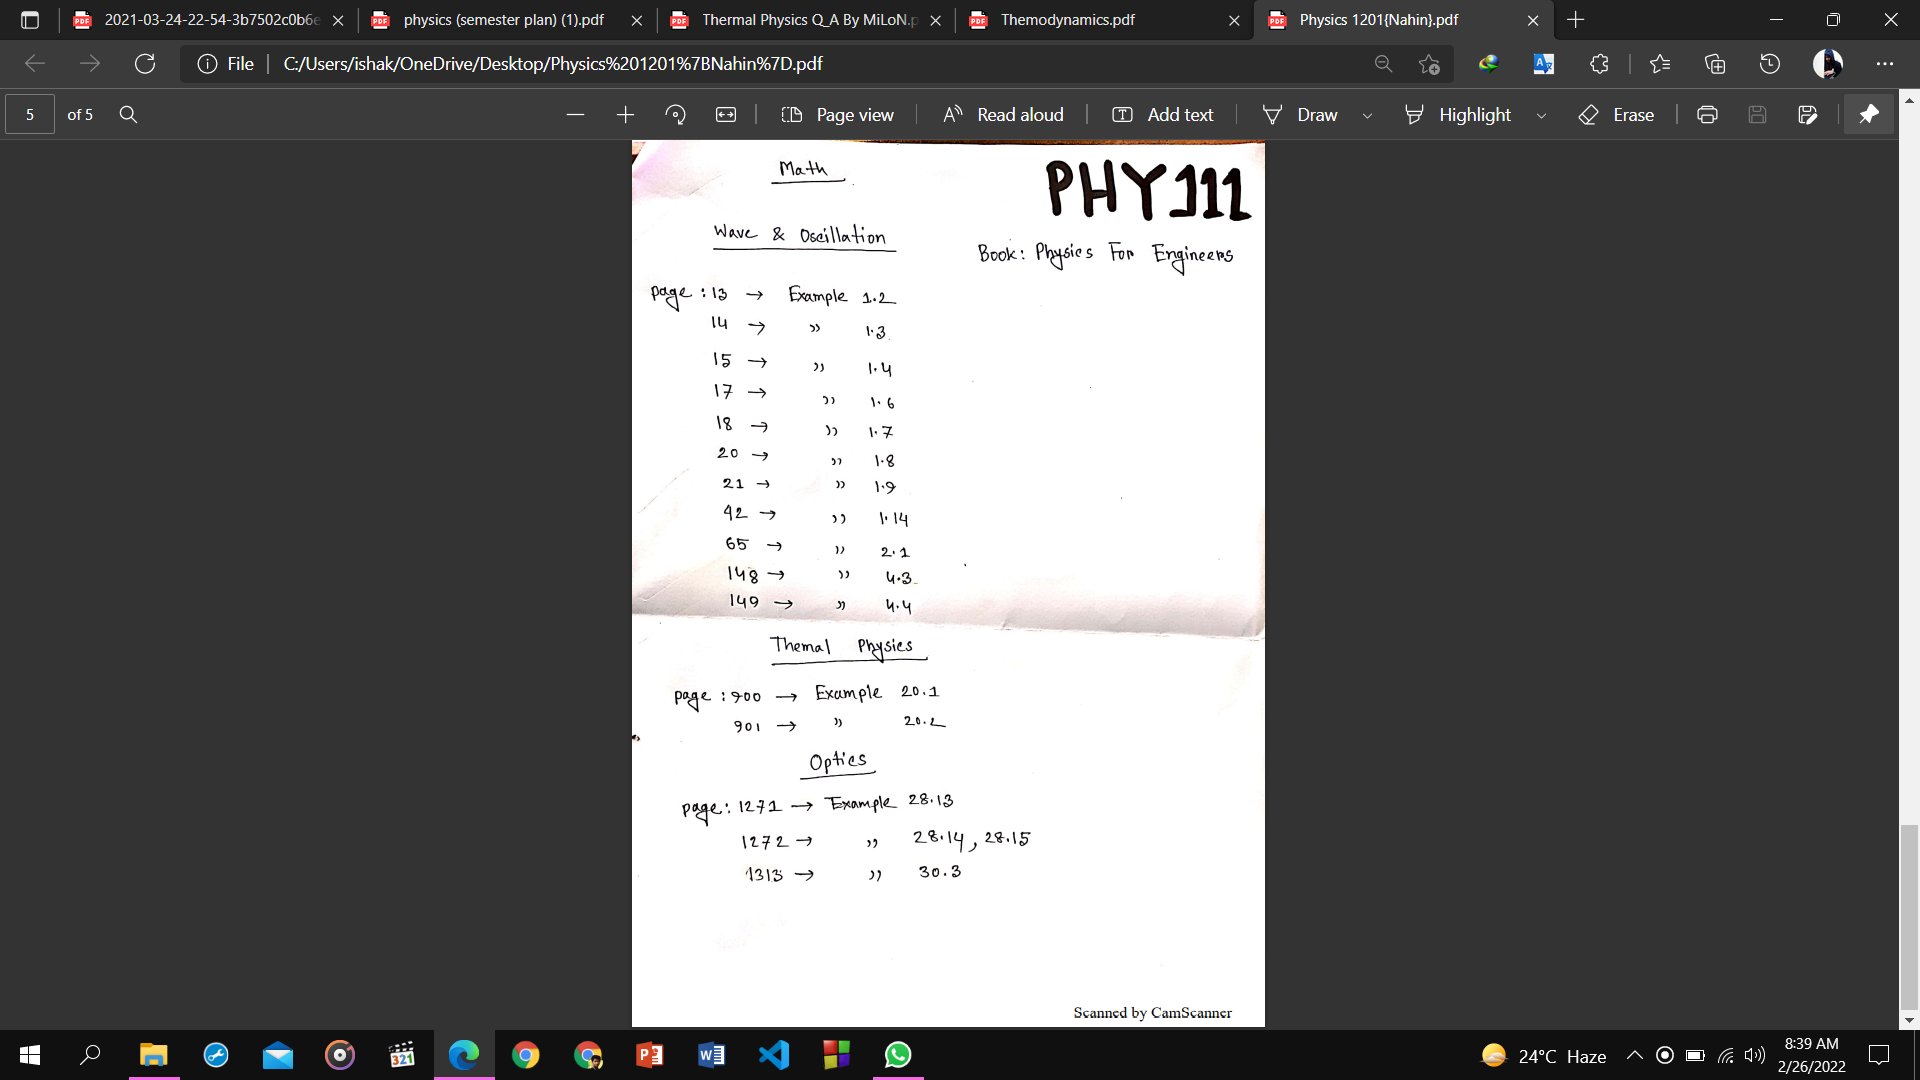 2021-03-24-22-54-3b7502c0b6e
physics (semester plan) (1).pdf
Thermal Physics Q_A By MiLoN.p
Themodynamics.pdf
Physics 1201{Nahin}.pdf
File
C:/Users/ishak/OneDrive/Desktop/Physics%201201%7BNahin%7D.pdf
5 of 5
Page view
Read aloud
Add text
Draw
Highlight
Erase
Math
PHY111
Wave & Oscillation
Book: Physics For Engineers
page : 13 → Example 1.2
14 → " 1.3
15 → " 1.4
17 → " 1.6
18 → " 1.7
20 → " 1.8
21 → " 1.9
42 → " 1.14
65 → " 2.1
148 → " 4.3
149 → " 4.4
Themal Physics
page : 900 → Example 20.1
901 → " 20.2
Optics
page: 1271 → Example 28.13
1272 → " 28.14, 28.15
1313 → " 30.3
Scanned by CamScanner
321
24°C Haze
8:39 AM
2/26/2022